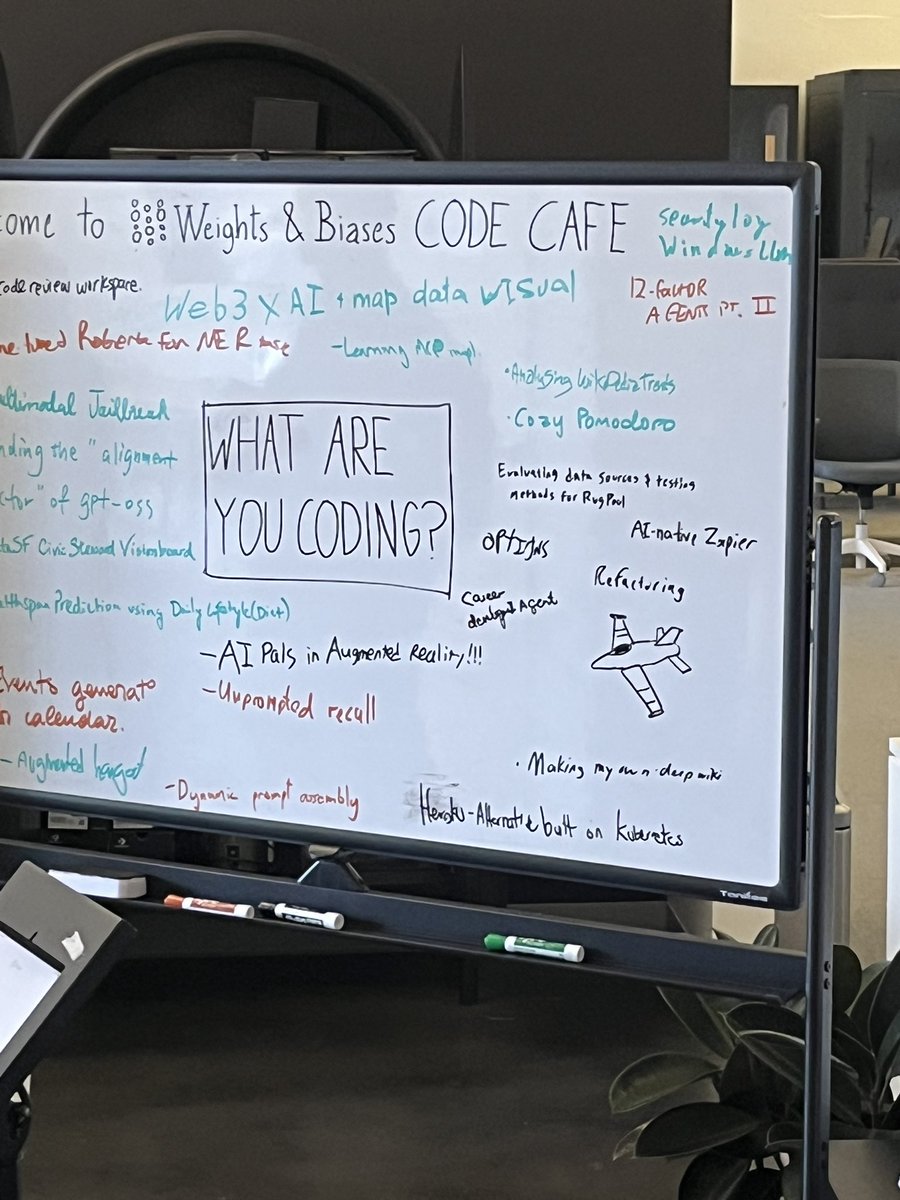 ome to Weights & Biases CODE CAFE
security log
Windows LLM
Code review workspace.
Web3 X AI + map data visual
12-FACTOR
AGENTS PT. II
ne tuned Roberta for NER
-Learning
•Analysing Wikipedia Trends
ultimodal Jailbreak
•Cozy Pomodoro
WHAT ARE
YOU CODING?
nding the "alignment
ctor" of gpt-oss
Evaluating data sources & testing
methods for RugPool
OPTIONS
AI-native Zapier
taSF Civic Steward Visionboard
Refactoring
althspan Prediction using Daily Lifestyle (Diet)
Career
Agent
-AI Pals in Augmented Reality!!!
Events generato
n calendar.
-Unprompted recall
- Augmented hangout
• Making my own deepwiki
-Dynamic prompt assembly
Heroku-Alternative built on Kubernetes